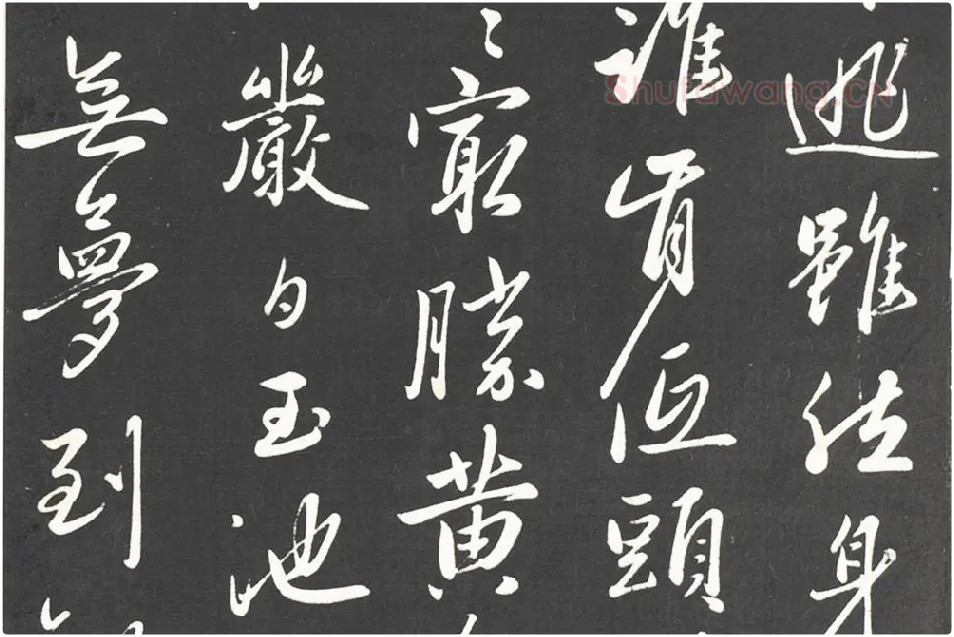 逃雖身
誰肯低頭
㝡勝黃
巖白玉池
無夢到
Shufawang.CN